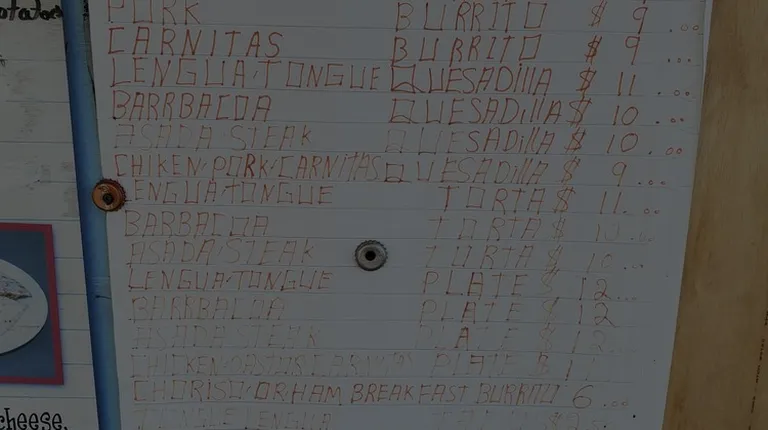 PORK BURRITO $ 9.00
CARNITAS BURRITO $ 9.00
LENGUA·TONGUE QUESADillA $ 11.00
BARRBACOA QUESADillA $ 10.00
ASADA STEAK QUESADillA $ 10.00
CHIKEN·PORK·CARNITAS QUESADillA $ 9.00
LENGUA·TONGUE TORTA $ 11.00
BARBACOA TORTA $
ASADA·STEAK TORTA $ 10.00
LENGUA·TONGUE PLATE $ 12.00
BARRBACOA PLATE $ 12
ASADA STEAK PLATE $ 12
CHICKEN·PASTOR·CARNITAS PLATE $
CHORISO·OR·HAM BREAKFAST BURRITO 6.00
LENGUA
cheese.